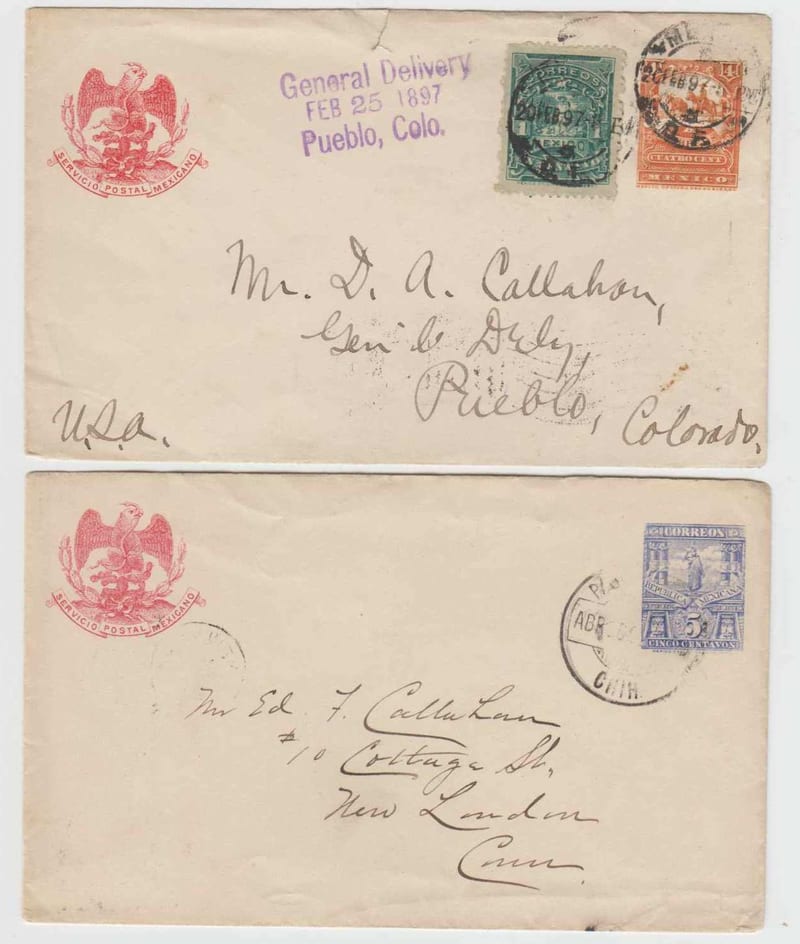 SERVICIO POSTAL MEXICANO
General Delivery
FEB 25 1897
Pueblo, Colo.
CORREOS
MEXICO
20 FEB 97
D. F.
4
20 FEB 97
D. F.
CUATRO CENT
MEXICO
Mr. D. A. Callahan,
Gen'l Dely,
Pueblo, Colorado,
U.S.A.
SERVICIO POSTAL MEXICANO
CORREOS
REPUBLICA MEXICANA
5
CINCO CENTAVOS
ABR
CHIH
Mr Ed. F. Callahan
#10 Cottage St.,
New London
Conn.